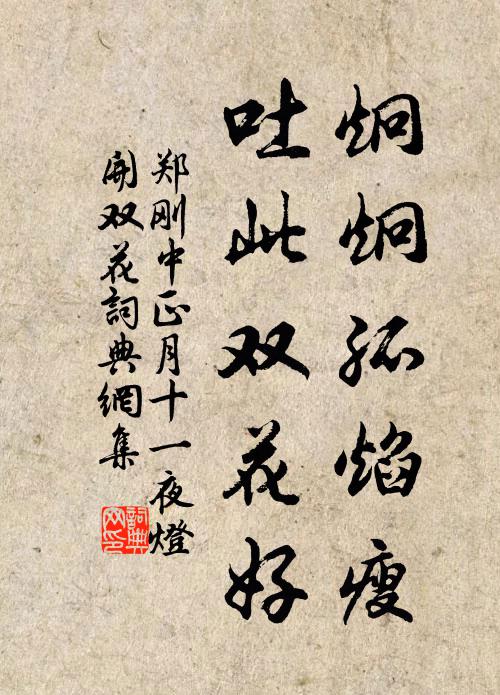 炯炯孤焰瘦
吐此双花好
郑刚中正月十一夜燈
開双花詞典網集
詞典
网印